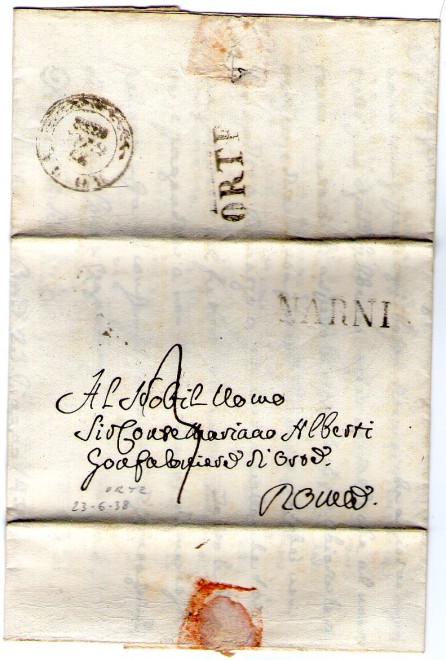 ORTE
NARNI
Al Nobil Uomo
Sig Conte Mariano Alberti
Gonfaloniere d'Orte.
Roma.
ORTE
23-6-38